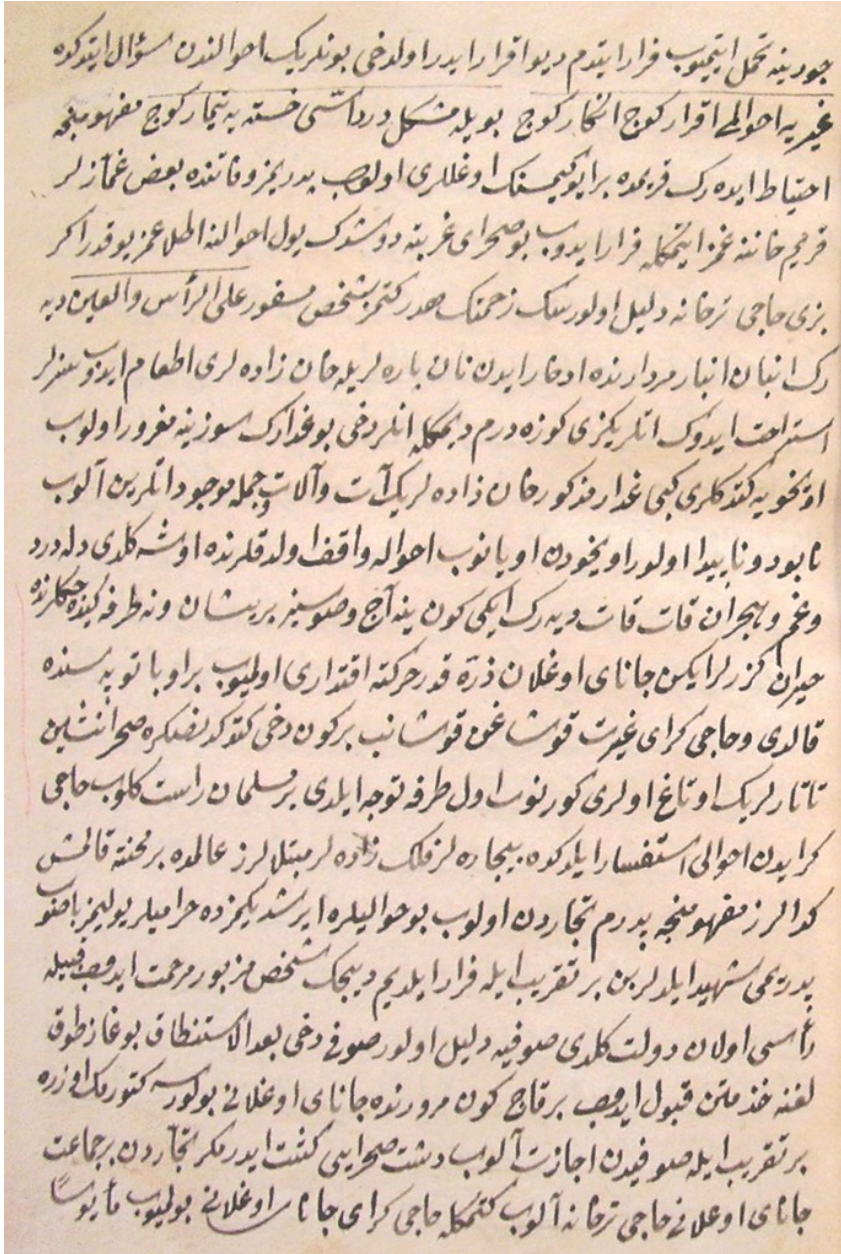 جورینه تحمل ایتمیوب فرار ایتدم دیو اقرار ایدر اولدخی بونلرک احوالندن سؤال ایتدکده
غیریه احوالی اقرار کوج انکار کوج بویله مشکل درد اسّی خسته یه تیمار کوج مفهومنجه
احتیاط ایده رک قریمده برایو کیمسنک اوغللری اولوب پدریمز وفاتنده بعض غمّازلر
قریم خاننه غمز ایتمکله فرار ایدوب بو صحرای غربته دوشدک یول احوالنه اطلاعمز یوقدر اکر
بزی حاجی ترخانه دلیل اولورسک زحمتک هدر کتمز شخص مسفور علی الرأس والعین دیه
رک انبان انبار مردارنده ادخار ایدن نان پاره لریله خان زاده لری اطعام ایدوب سزلر
استراحت ایدوک اتلریکزی کوزه درم دیمکله انلر دخی بو غدارک سوزینه مغرور اولوب
اویخویه کتدکلری کبی غدار مذکور خان زاده لریک آت وآلات وجمله موجود اتلرین آلوب
نابود وناپیدا اولور اویخودن اویانوب احواله واقف اولدقلرنده اوشه کلدی دله درد
وغم وهجران قات قات دیه رک ایکی کون ینه آج وصوسز پریشان ونه طرفه کیده جکلرنده
حیران کزرلر ایکن جانای اوغلان ذرّه قدر حرکته اقتداری اولمیوب براوبا توپه سنده
قالدی وحاجی کرای غیرت قوشاغن قوشانب برکون دخی کتدکدنصکره صحرانشین
تاتارلریک اوتاغ اولری کورنوب اول طرفه توجه ایلدی بر مسلمان راست کلوب حاجی
کرایدن احوالی استفسار ایلدکده بیچاره لرز فلک زاده لر مبتلالرز عالمده بر محنته قالمش
کدالرز مفهومنجه پدرم تجاردن اولوب بو حوالیلره ایرشدیکمزده حرامیلر یولیمز باصوب
پدریمی شهید ایلدلر بن بر تقریب ایله فرار ایلدیم دیجک شخص مزبور مرحمت ایدوب قبیله
رأسی اولان دولت کلدی صوفیه دلیل اولور صوفی دخی بعد الاستنطاق بوغاز طوق
لغنه خذمتن قبول ایدوب برقاج کون مرورنده جانای اوغلانی بولورسه کتورمک اوزره
بر تقریب ایله صوفیدن اجازت آلوب دشت صحرایی کشت ایدر مکر تجّاردن بر جماعت
جانای اوغلانی حاجی ترخانه آلوب کتمکله حاجی کرای جانای اوغلانی بولمیوب مأیوساً